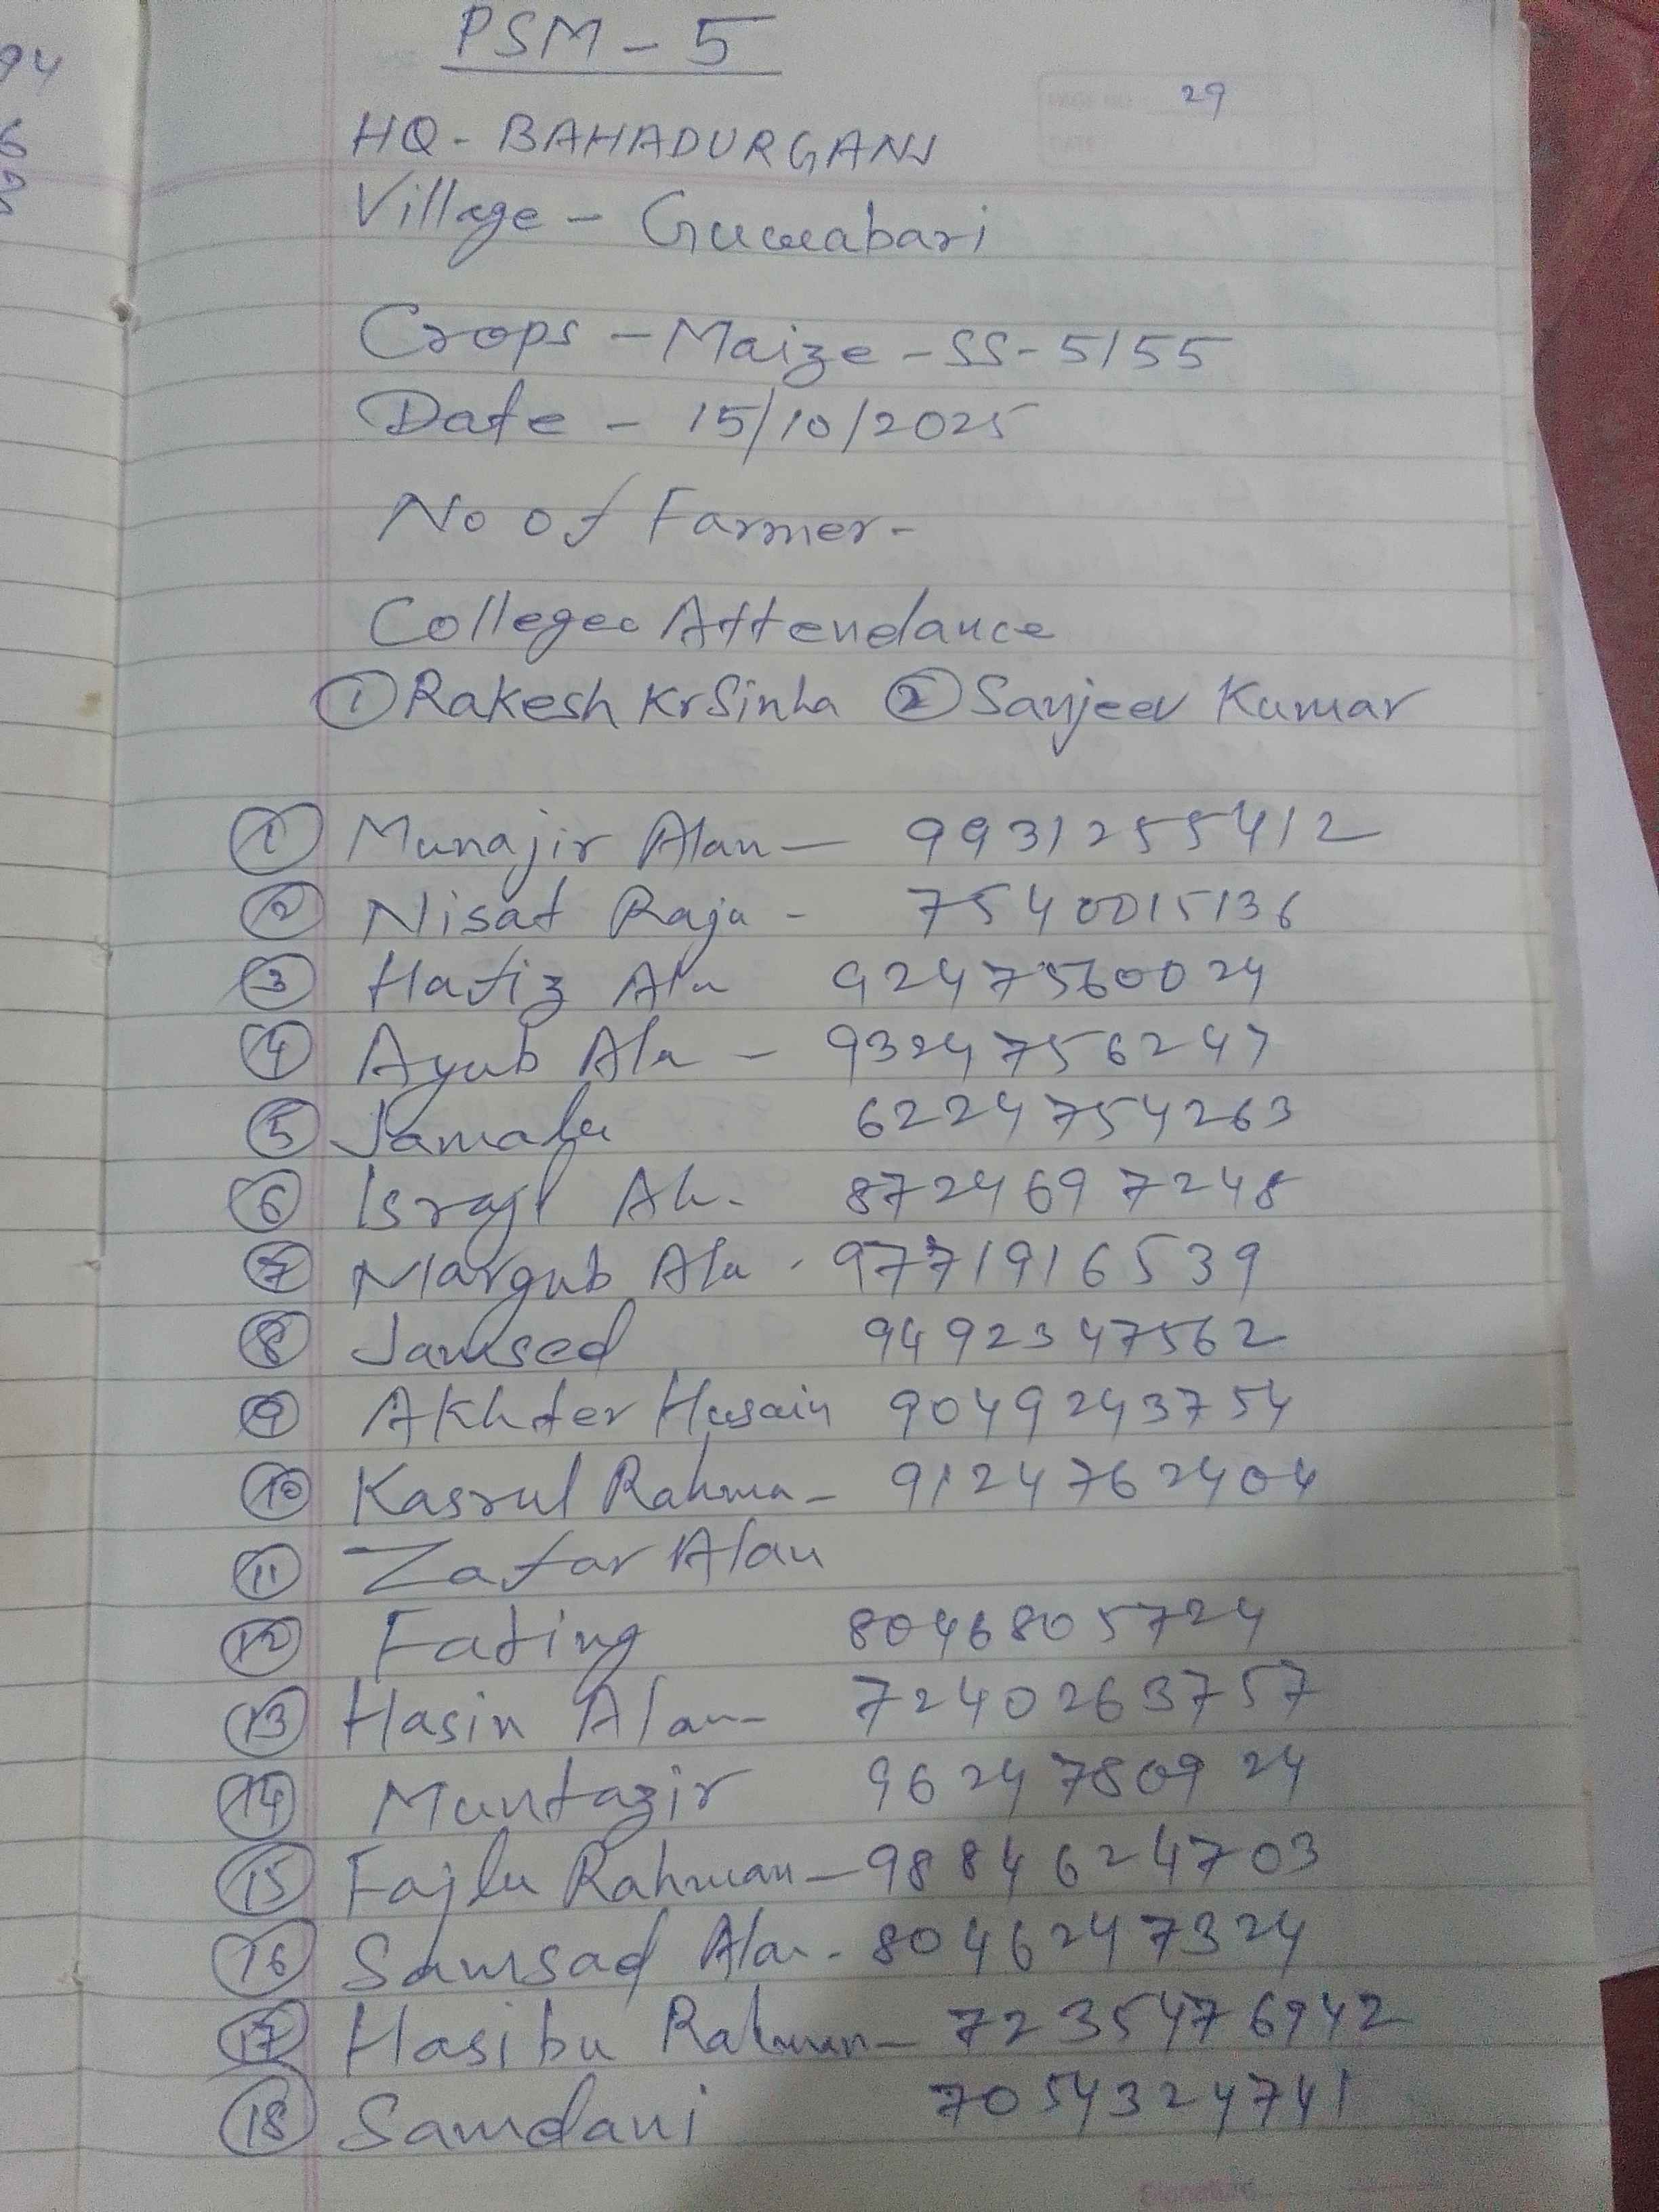 PSM - 5
29
HQ - BAHADURGANJ
Village - Guwabari
Crops - Maize - SS - 5155
Date - 15/10/2025
No of Farmer -
Collegee Attendance
① Rakesh Kr Sinha ② Sanjeev Kumar
① Munajir Alam — 9931255412
② Nisat Raja - 7540015136
③ Hafiz Ala 9247560024
④ Ayub Ala - 9324756247
⑤ Jamalu 6224754263
⑥ Israfl Al. 8724697248
⑦ Margub Ala - 9771916539
⑧ Jamsed 9492347562
⑨ Akhter Husain 9049243754
⑩ Kasrul Rahma - 9124762404
⑪ Zafar Alam
⑫ 8046805724
⑬ Hasin Alam - 7240263757
⑭ Muntazir 9624780924
⑮ Fajlu Rahman - 9884624703
⑯ Samsad Ala - 8046247324
⑰ Hasibu Rahman - 7235476942
⑱ Samdani 7054324741
94
6